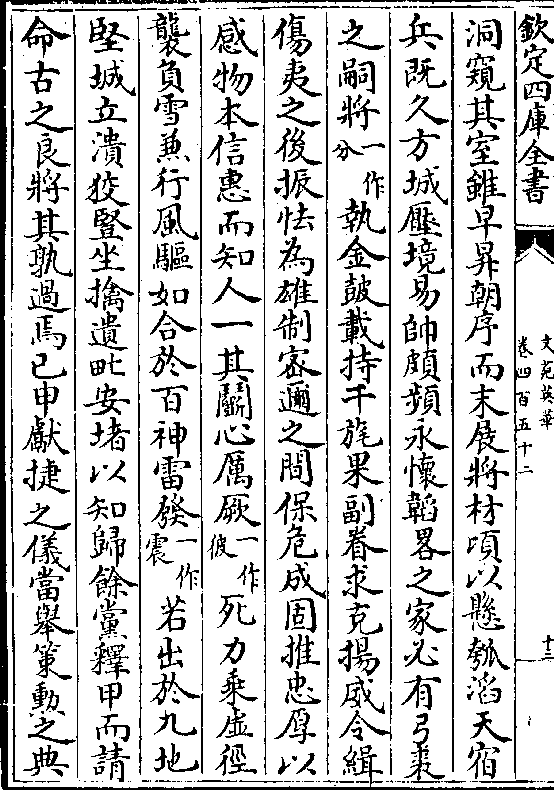 欽定四庫全書
文苑英華
卷四百五十二
十三
洞窺其室雖早昇朝序而末展將材頃以懸瓠滔天宿
兵既久方城壓境易帥頗頻永懷韜畧之家必有弓裘
之嗣將一作分執金鼓載持干旄果副眷求克揚威令緝
傷夷之後振怯為雄制密邇之間保危成固推忠厚以
感物本信惠而知人一其鬭心厲厥一作彼死力乘虛徑
襲負雪兼行風驅如合於百神雷發一作震若出於九地
堅城立潰狡豎坐擒遺甿安堵以知歸餘黨釋甲而請
命古之良將其孰過焉已申獻捷之儀當舉策勳之典